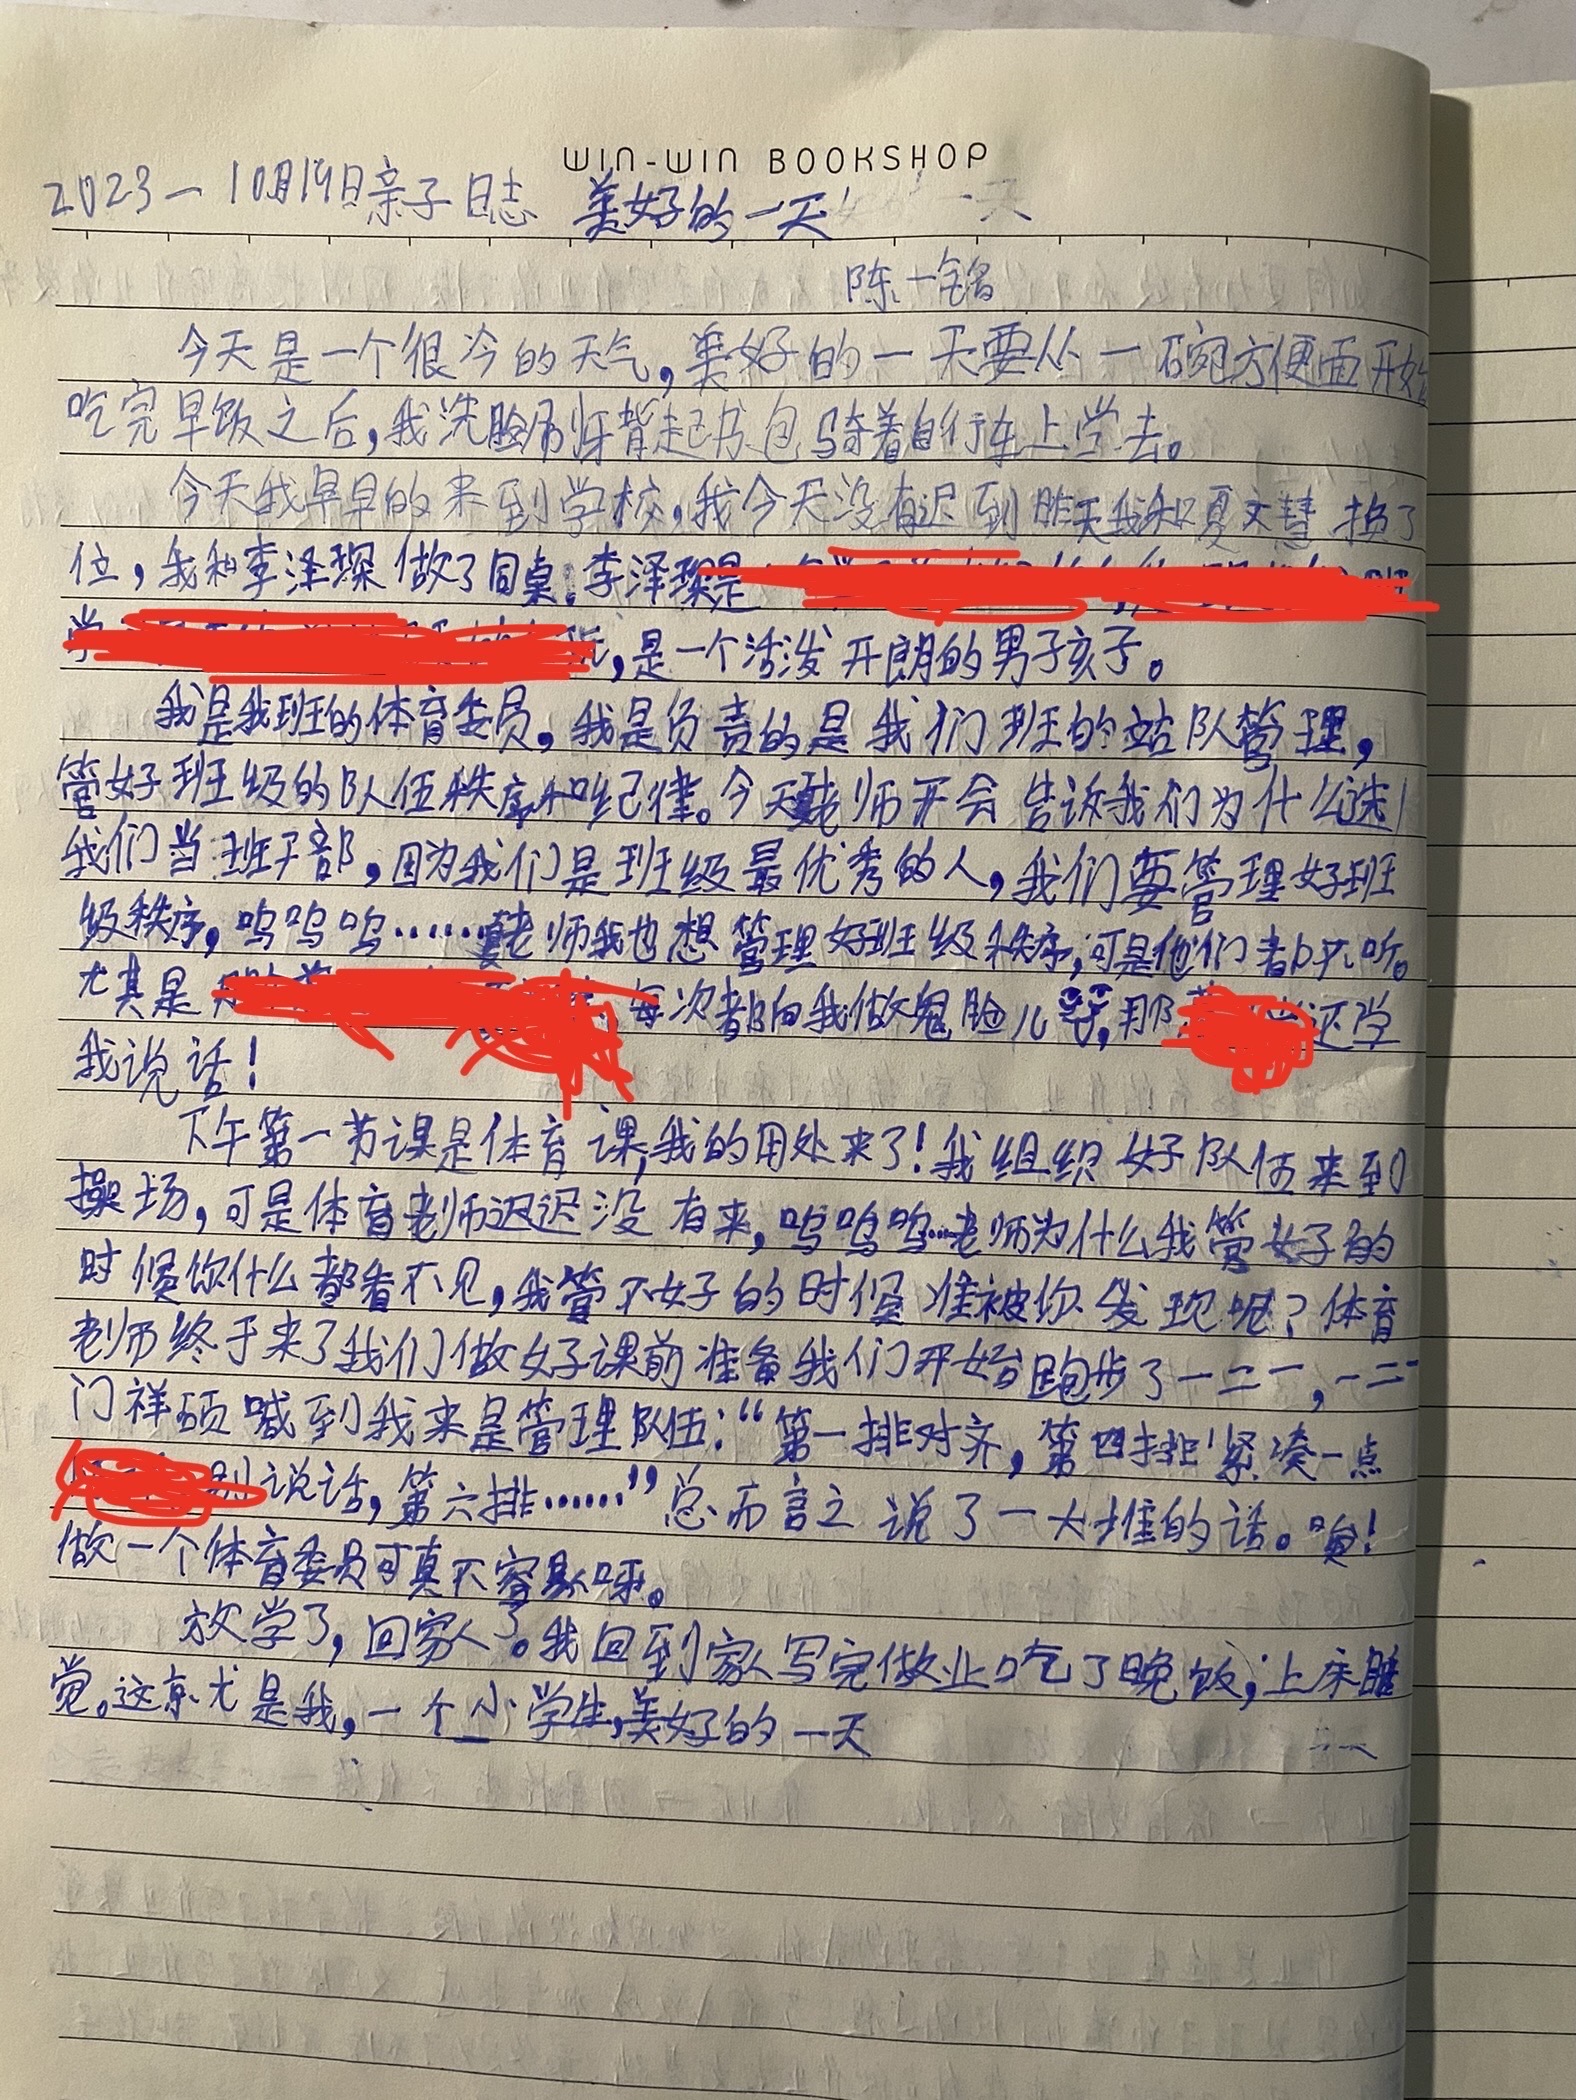 WIN-WIN BOOKSHOP
2023-10月19日亲子日志 美好的一天
陈一铭
今天是一个很冷的天气,美好的一天要从一碗方便面开始
吃完早饭之后,我洗脸刷牙背起书包骑着自行车上学去。
今天我早早的来到学校,我今天没有迟到昨天我和夏文慧换了
位,我和李泽琛做了同桌.李泽琛是
学 ,是一个活泼开朗的男子孩子。
我是我班的体育委员,我是负责的是我们班的站队管理,
管好班级的队伍秩序和纪律。今天老师开会告诉我们为什么选
我们当班干部,因为我们是班级最优秀的人,我们要管理好班
级秩序,呜呜呜……老师我也想管理好班级秩序,可是他们都不听。
尤其是 每次都向我做鬼脸儿,那 还学
我说话!
下午第一节课是体育课,我的用处来了!我组织好队伍来到
操场,可是体育老师迟迟没有来,呜呜呜…老师为什么我管好的
时候你什么都看不见,我管不好的时候准被你发现呢?体育
老师终于来了我们做好课前准备我们开始跑步了一二一,一二一
门祥硕喊到我来是管理队伍:“第一排对齐,第四排紧凑一点
别说话,第六排……”总而言之说了一大堆的话。唉!
做一个体育委员可真不容易呀。
放学了,回家了。我回到家写完做业吃了晚饭,上床睡
觉。这就是我,一个小学生,美好的一天